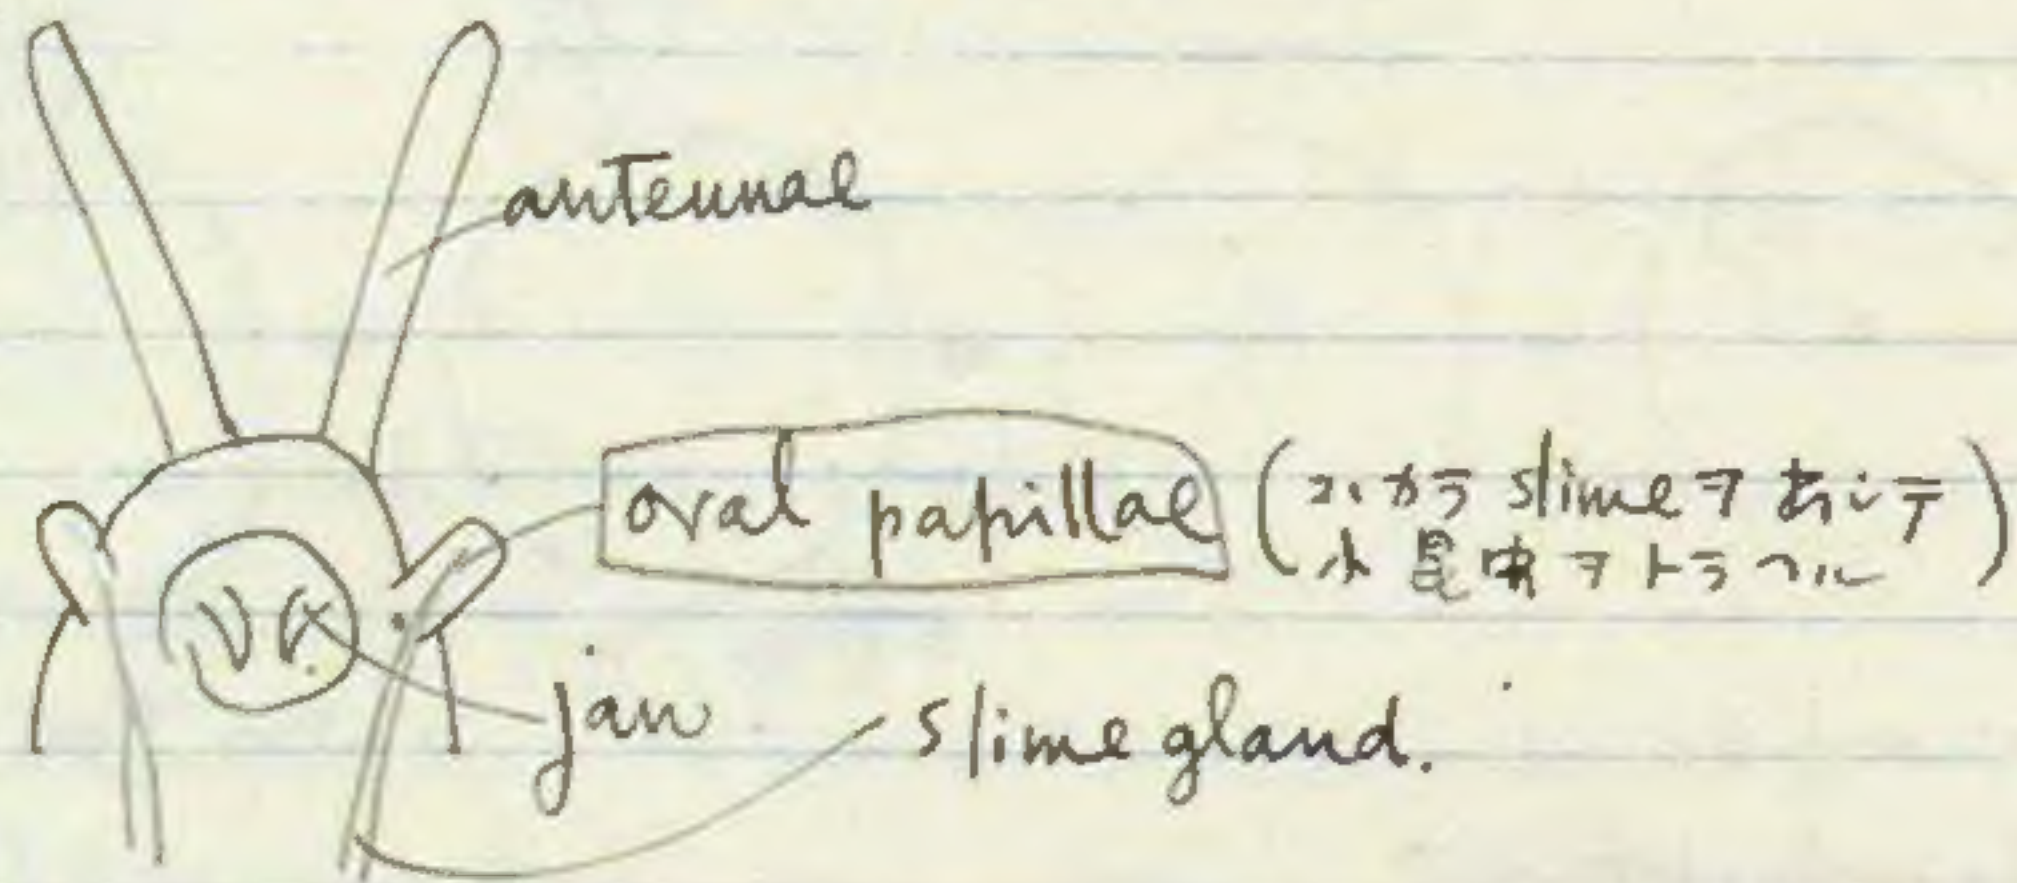 antennae
oral papillae (コレカラ slimeヲ出シテ
小昆虫ヲトラヘル)
jaw
slime gland.